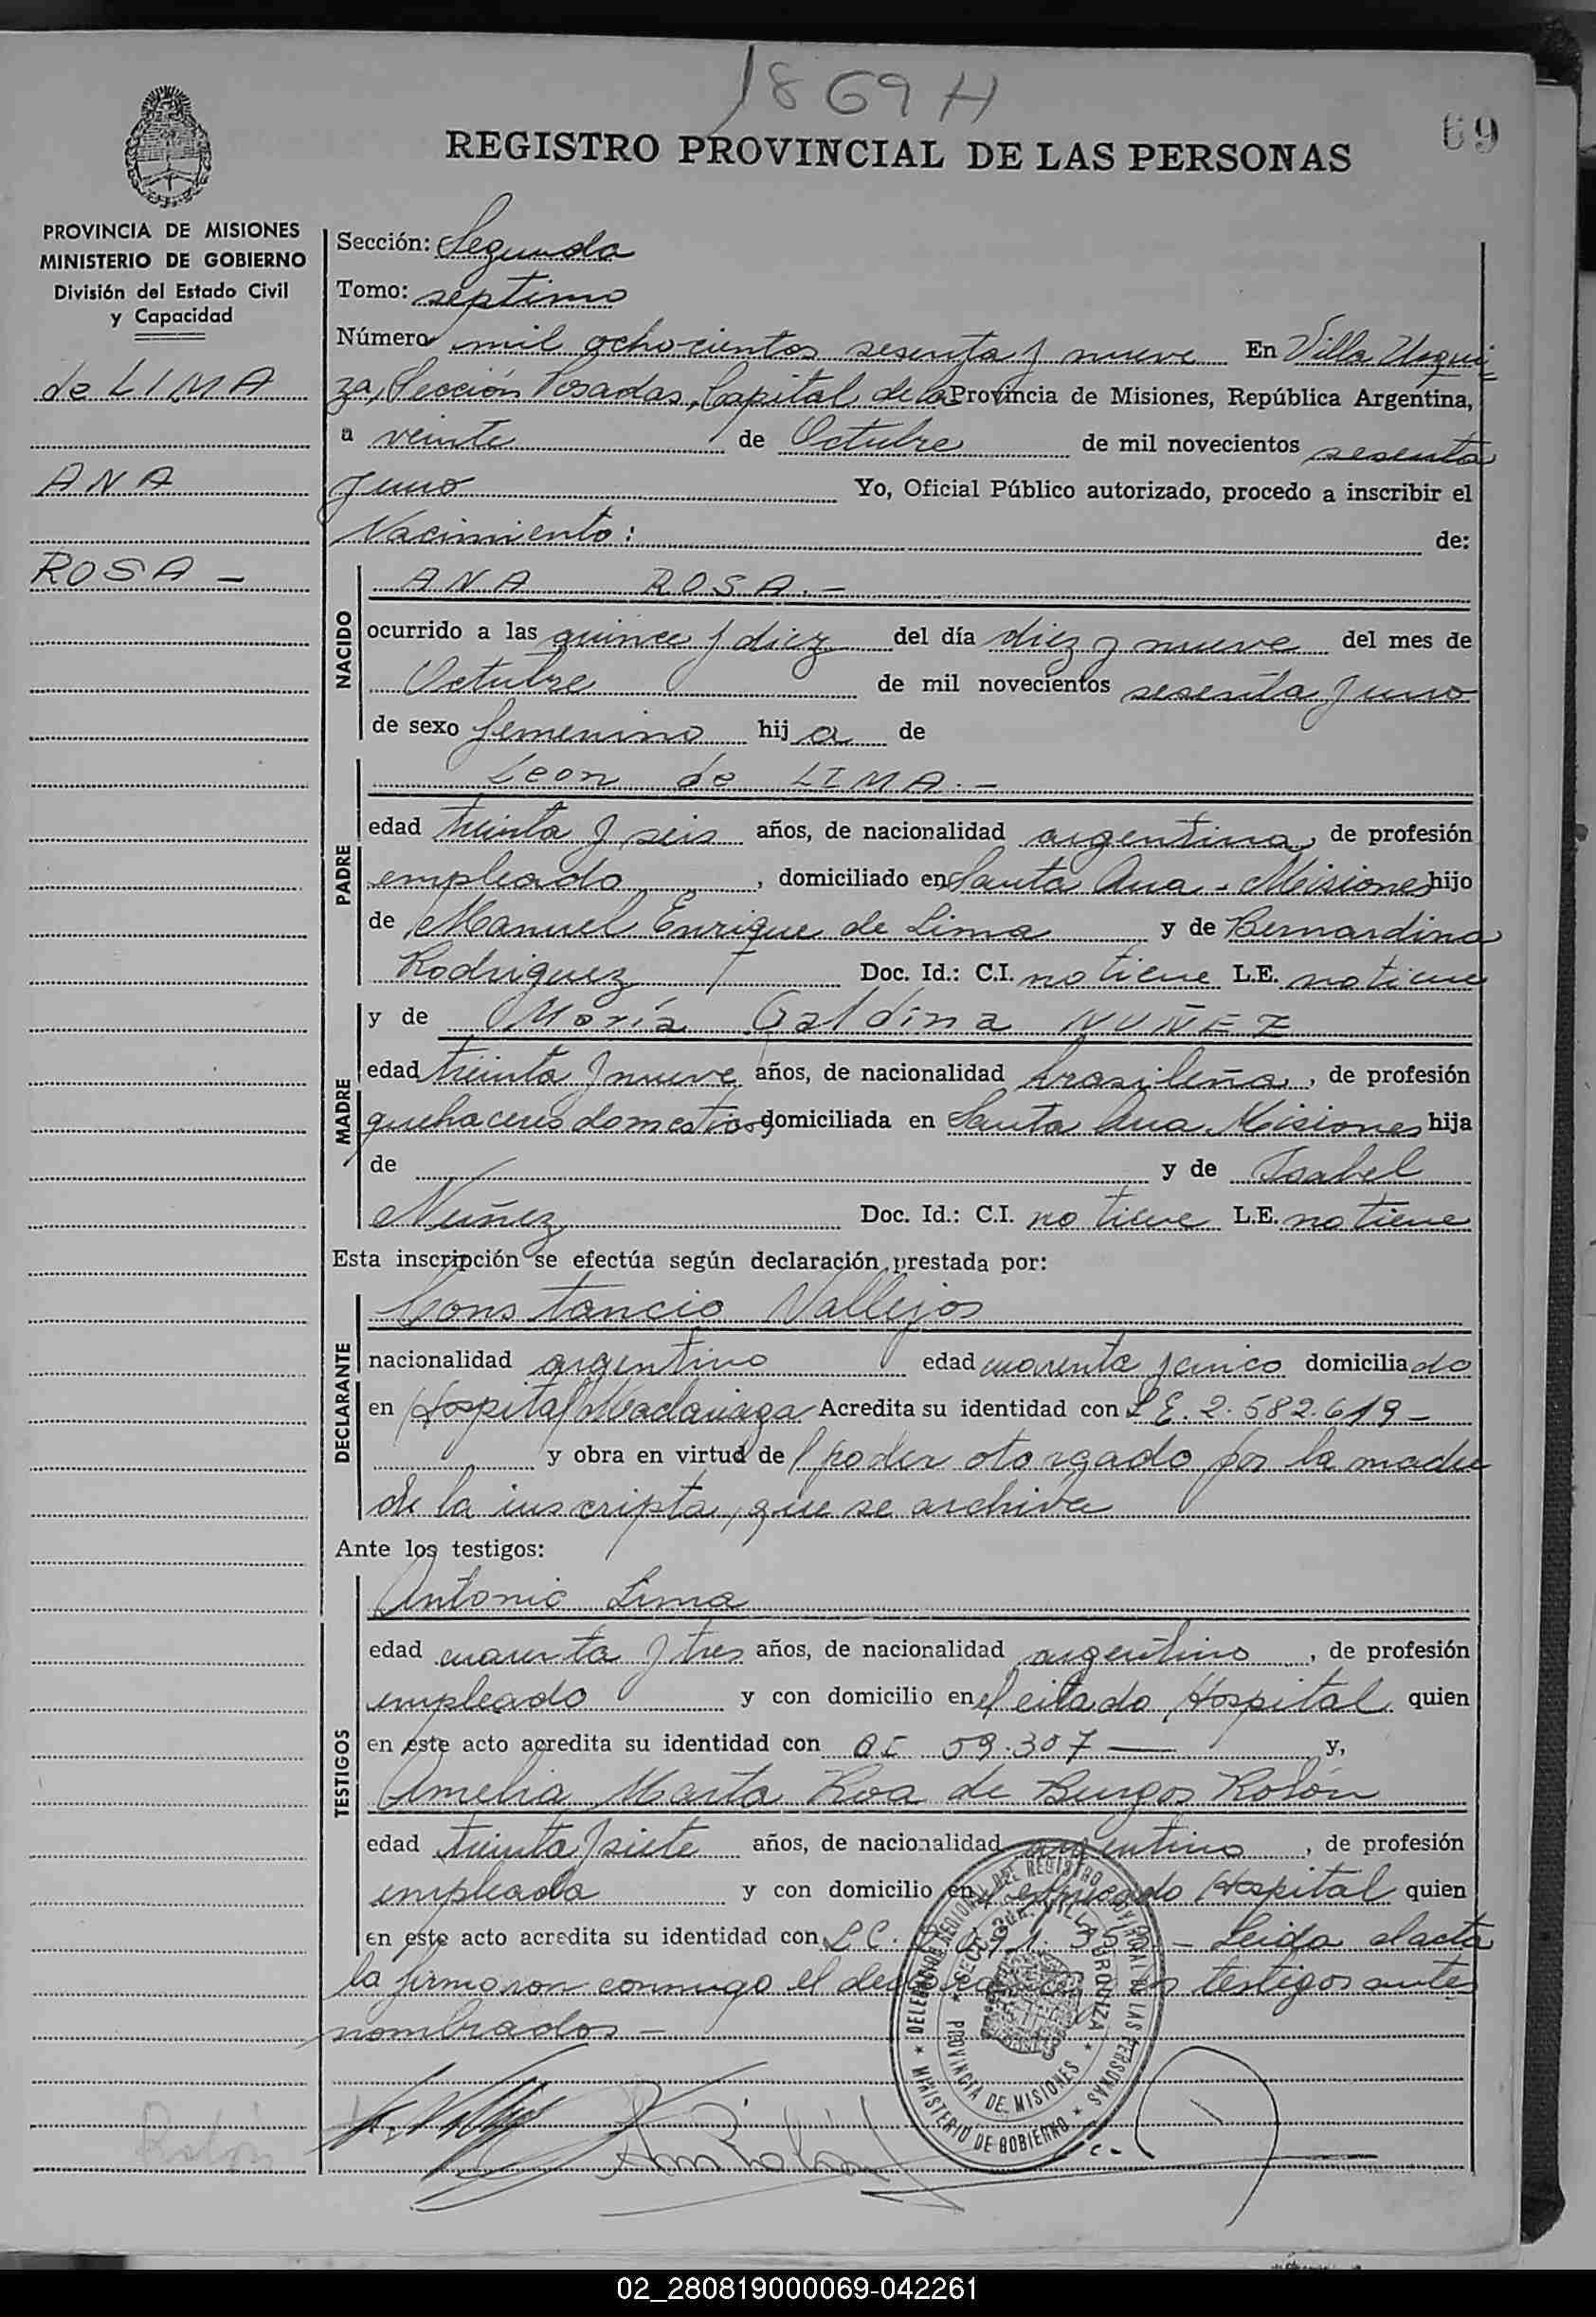 1869 H
69
REGISTRO PROVINCIAL DE LAS PERSONAS
PROVINCIA DE MISIONES
MINISTERIO DE GOBIERNO
División del Estado Civil
y Capacidad
de LIMA
ANA
ROSA -
Sección: Segunda
Tomo: septimo
Número mil ochocientos sesenta y nueve En Villa Urqui
za, Sección Posadas, Capital de la Provincia de Misiones, República Argentina,
a veinte de Octubre de mil novecientos sesenta
y uno Yo, Oficial Público autorizado, procedo a inscribir el
Nacimiento: de:
NACIDO
ANA ROSA.-
ocurrido a las quince y diez del día diez y nueve del mes de
Octubre de mil novecientos sesenta y uno
de sexo femenino hij a de
PADRE
Leon de LIMA.-
edad treinta y seis años, de nacionalidad argentina, de profesión
empleado, domiciliado en Santa Ana - Misiones hijo
de Manuel Enrique de Lima y de Bernardina
Rodriguez Doc. Id.: C.I. no tiene L.E. no tiene
MADRE
y de María Galdina NUÑEZ
edad treinta y nueve años, de nacionalidad brasileña, de profesión
quehaceres domesticos domiciliada en Santa Ana Misiones hija
de y de Isabel
Nuñez Doc. Id.: C.I. no tiene L.E. no tiene
Esta inscripción se efectúa según declaración prestada por:
DECLARANTE
Constancio Vallejos
nacionalidad argentino edad cuarenta y cinco domiciliado
en Hospital Madariaga Acredita su identidad con L.E. 2.582.619-
y obra en virtud de poder otorgado por la madre
de la inscripta, que se archiva
Ante los testigos:
TESTIGOS
Antonio Lima
edad cuarenta y tres años, de nacionalidad argentino, de profesión
empleado y con domicilio en el citado Hospital quien
en este acto acredita su identidad con 59.307 — y,
Amelia Marta Roa de Burgos Rolón
edad treinta y siete años, de nacionalidad argentina, de profesión
empleada y con domicilio en Hospital quien
en este acto acredita su identidad con L.C. - Leida el acta
la firmaron conmigo el testigos antes
nombrados -
DELEGACION REGIONAL DEL REGISTRO PROVINCIAL DE LAS PERSONAS
MINISTERIO DE GOBIERNO
PROVINCIA DE MISIONES
Rolón
02_280819000069-042261